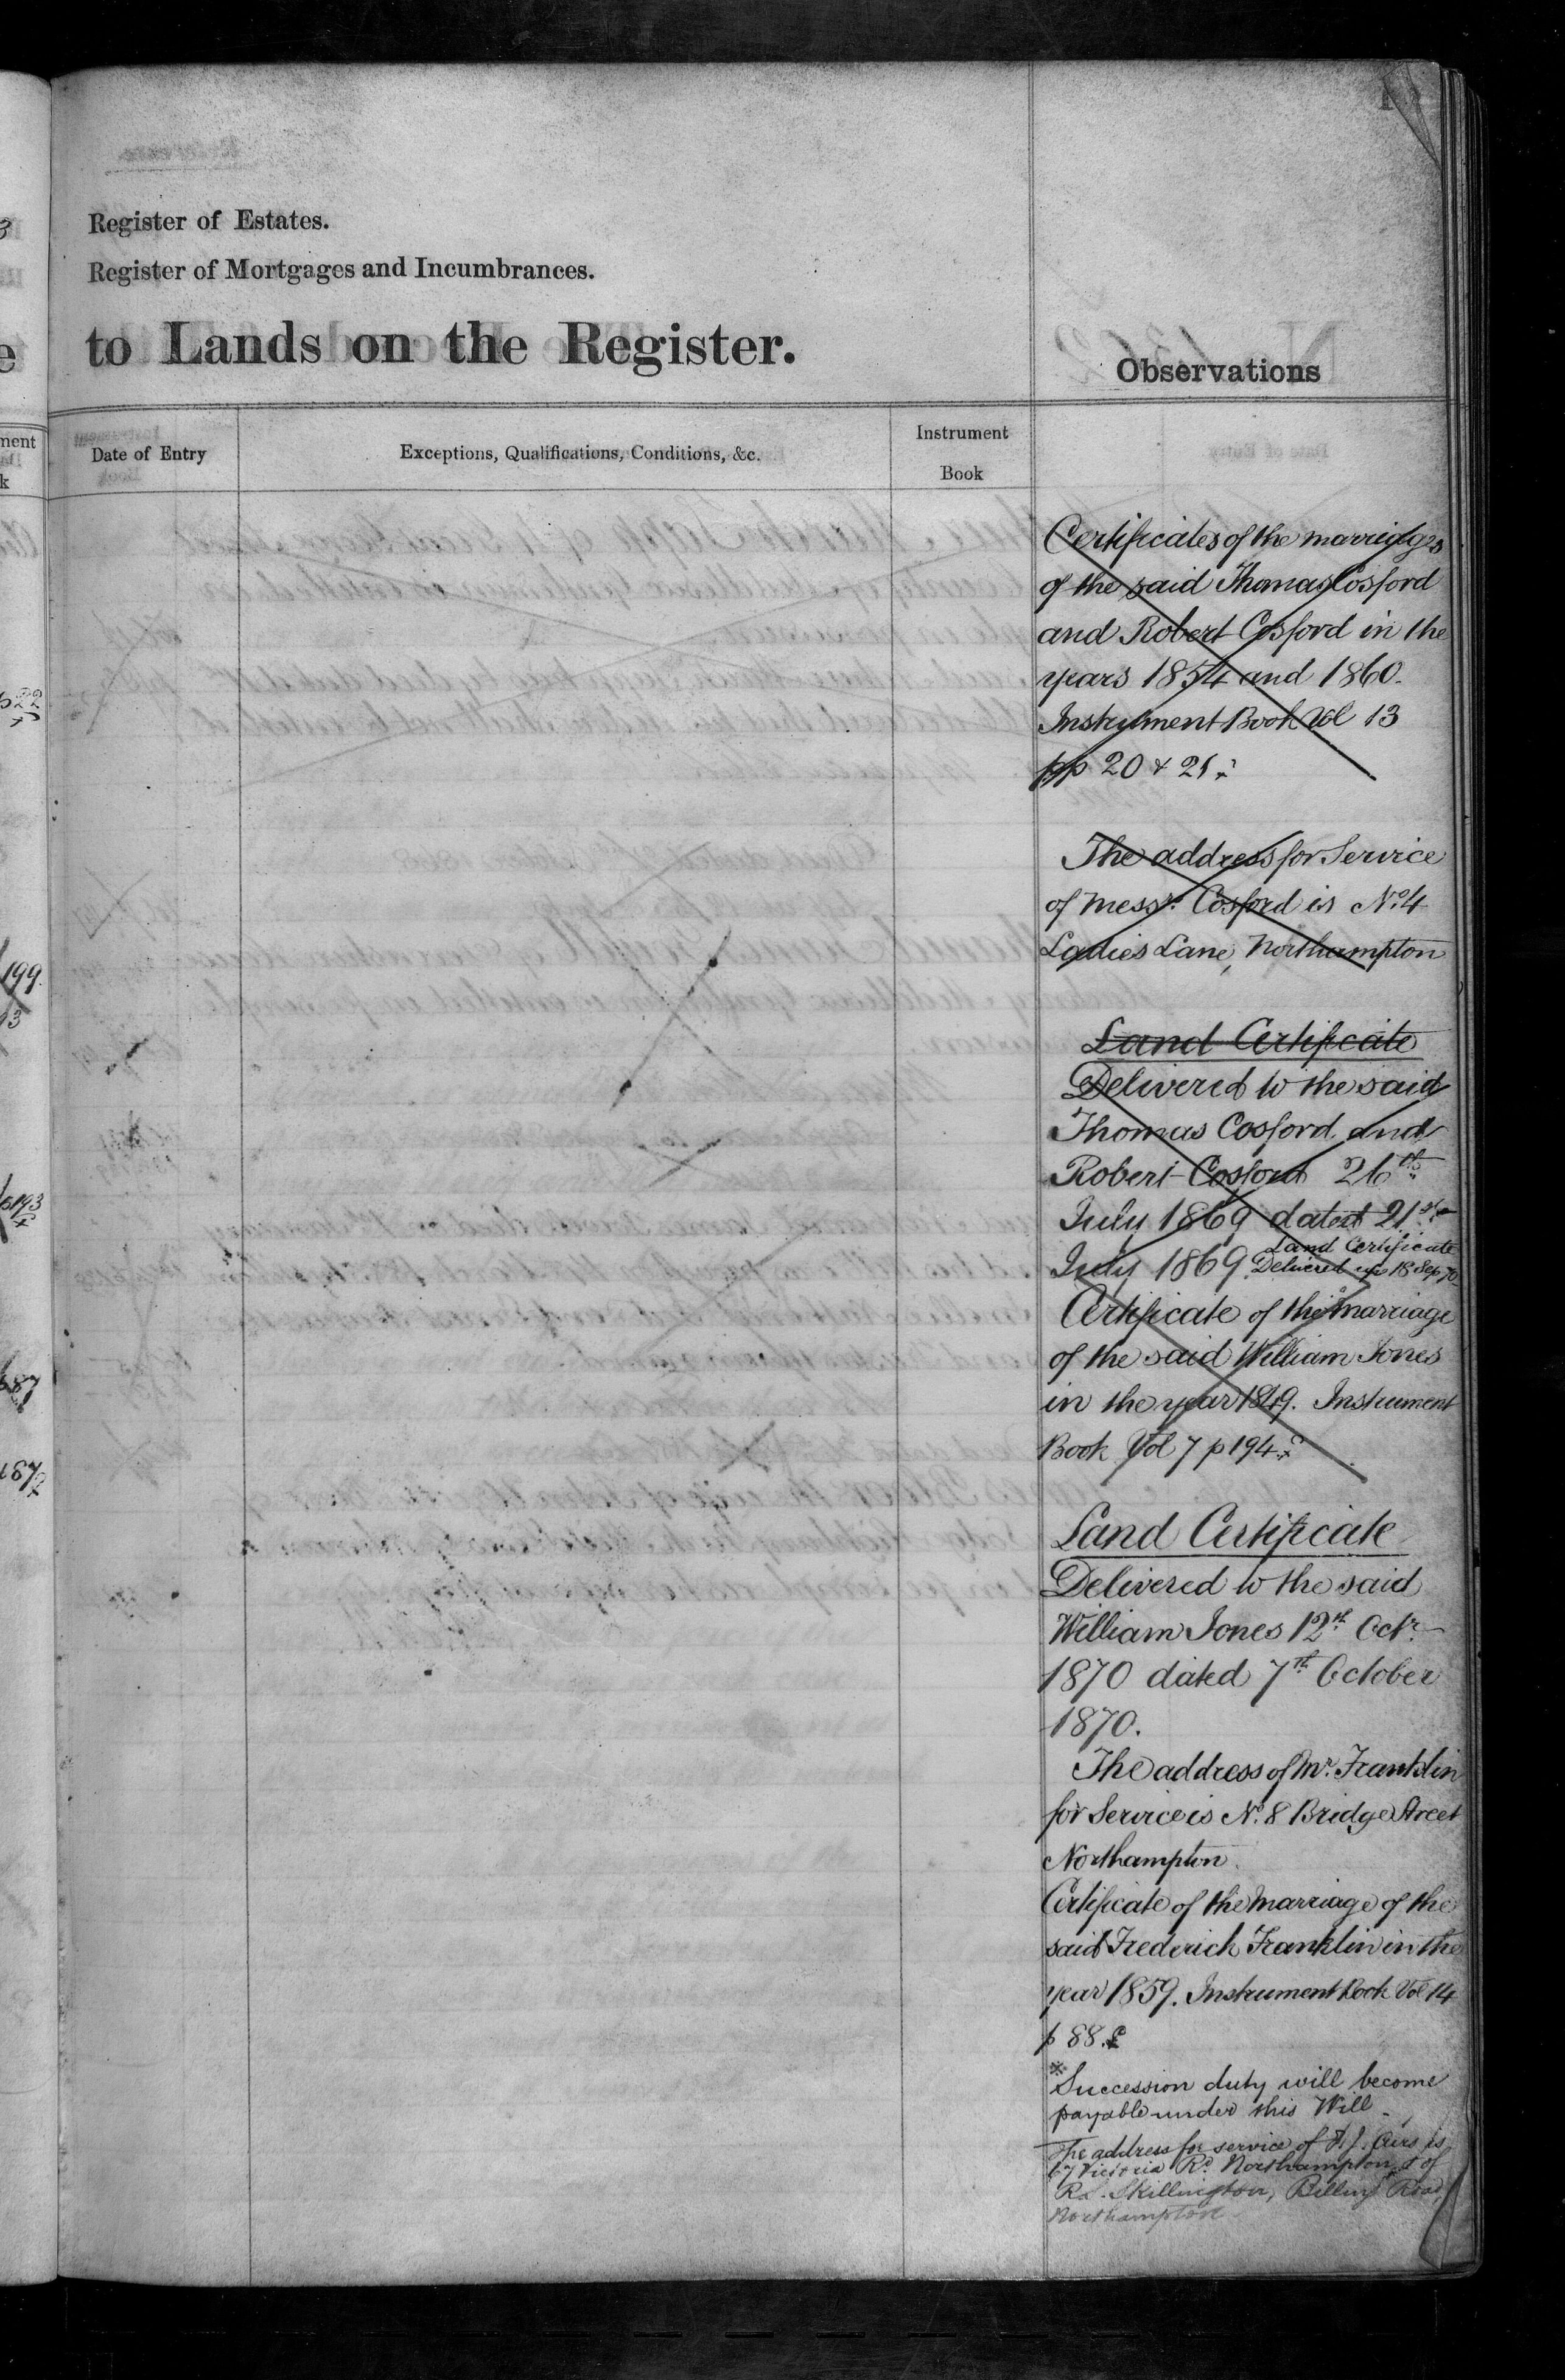 Register of Estates.
Register of Mortgages and Incumbrances.
to Lands on the Register.
Observations
Date of Entry
Exceptions, Qualifications, Conditions, &c.
Instrument
Book
Certificates of the marriages
of the said Thomas Cosford
and Robert Cosford in the
years 1854 and 1860.
Instrument Book Vol 13
pp 20 & 21
The address for Service
of Messrs. Cosford is No. 4
Ladies Lane, Northampton
Land Certificate
Delivered to the said
Thomas Cosford and
Robert Cosford 26th
July 1869 dated 21st
July 1869. Land Certificate
Delivered up 18 Sep 70
Certificate of the marriage
of the said William Jones
in the year 1849. Instrument
Book Vol 7 p 194
Land Certificate
Delivered to the said
William Jones 12th Octr.
1870 dated 7th October
1870.
The address of Mr. Franklin
for Service is No. 8 Bridge Street
Northampton.
Certificate of the Marriage of the
said Frederick Franklin in the
year 1859. Instrument Book Vol 14
p 88.
* Succession duty will become
payable under this Will
The address for service of is
67 Victoria Rd. Northampton & of
Skillington, Billing Road,
Northampton